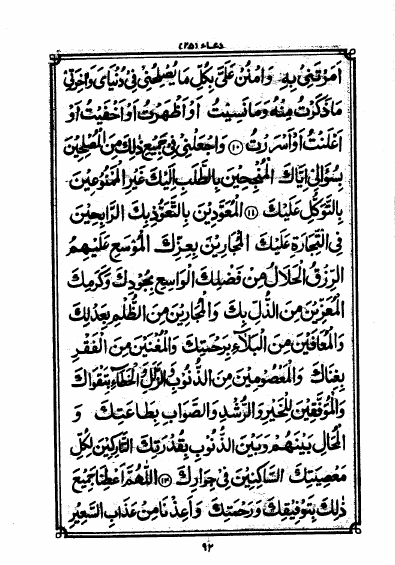 دعاء (٢٥)
اَمَرْتَنىٖ بِهٖ وَامْنُنْ عَلَىَّ بِكُلِّ مَا يُصْلِحُنىٖ فىٖ دُنْيَاىَ وَاٰخِرَتىٖ
مَا ذَكَرْتُ مِنْهُ وَمَا نَسيٖتُ اَوْ اَظْهَرْتُ اَوْ اَخْفَيْتُ اَوْ
اَعْلَنْتُ اَوْ اَسْرَرْتُ (١٠) وَاجْعَلْنىٖ فىٖ جَميٖعِ ذٰلِكَ مِنَ الْمُصْلِحيٖنَ
بِسُؤَالىٖ اِيَّاكَ الْمُنْجِحيٖنَ بِالطَّلَبِ اِلَيْكَ غَيْرِ الْمَمْنُوعيٖنَ
بِالتَّوَكُّلِ عَلَيْكَ (١١) الْمُعَوَّديٖنَ بِالتَّعَوُّذِ بِكَ الرَّابِحيٖنَ
فِى التِّجَارَةِ عَلَيْكَ الْمُجَاريٖنَ بِعِزِّكَ الْمُوَسَّعِ عَلَيْهِمُ
الرِّزْقُ الْحَلَالُ مِنْ فَضْلِكَ الْوَاسِعِ بِجُودِكَ وَكَرَمِكَ
الْمُعَزّيٖنَ مِنَ الذُّلِّ بِكَ وَالْمُجَاريٖنَ مِنَ الظُّلْمِ بِعَدْلِكَ
وَالْمُعَافَيْنَ مِنَ الْبَلَآءِ بِرَحْمَتِكَ وَالْمُغْنَيْنَ مِنَ الْفَقْرِ
بِغِنَاكَ وَالْمَعْصُوميٖنَ مِنَ الذُّنُوبِ وَالزَّلَلِ وَالْخَطَآءِ بِتَقْوَاكَ
وَالْمُوَفَّقيٖنَ لِلْخَيْرِ وَالرُّشْدِ وَالصَّوَابِ بِطَاعَتِكَ وَ
الْمُحَالِ بَيْنَهُمْ وَبَيْنَ الذُّنُوبِ بِقُدْرَتِكَ التَّارِكيٖنَ لِكُلِّ
مَعْصِيَتِكَ السَّاكِنيٖنَ فىٖ جِوَارِكَ (١٢) اَللّٰهُمَّ اَعْطِنَا جَميٖعَ
ذٰلِكَ بِتَوْفيٖقِكَ وَرَحْمَتِكَ وَاَعِذْنَا مِنْ عَذَابِ السَّعيٖرِ
٩٢